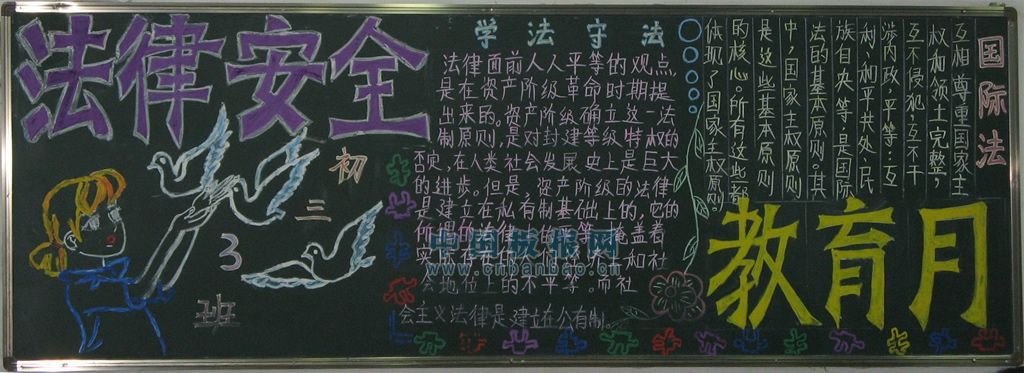 法律安全
初
三
3
班
学法守法
法律面前人人平等的观点,
是在资产阶级革命时期提
出来的。资产阶级确立这一法
制原则,是对封建等级特权的
否定,在人类社会发展史上是巨大
的进步。但是,资产阶级的法律
是建立在私有制基础上的,它的
所谓的法律
会地位上的不平等。而社
会主义法律是建立在公有制。
国际法
互相尊重国家主
权和领土完整,
互不侵犯,互不干
涉内政,平等互
利,和平共处、民
族自央等,是国际
法的基本原则。其
中,国家主权原则
是这些基本原则
的核心。所有这些都
体现了国家主权原则
教育月
中国板报网
www.cnbanbao.cn